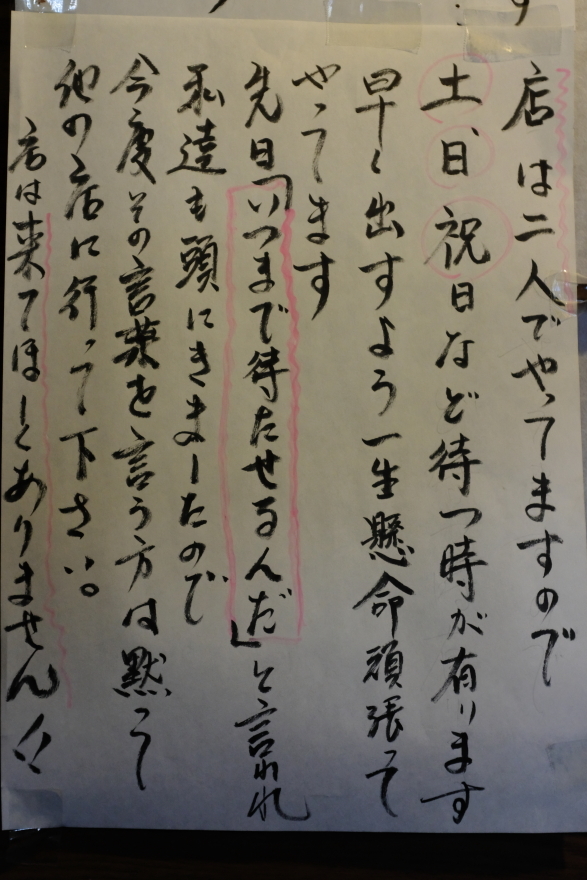 店は二人でやってますので
土日祝日など待つ時が有ります
早く出すよう一生懸命頑張って
やってます
先日「いつまで待たせるんだ」と言われ
私達も頭にきましたので
今度その言葉を言う方は黙って
他の店に行って下さい。
当店は来てほしくありません!!